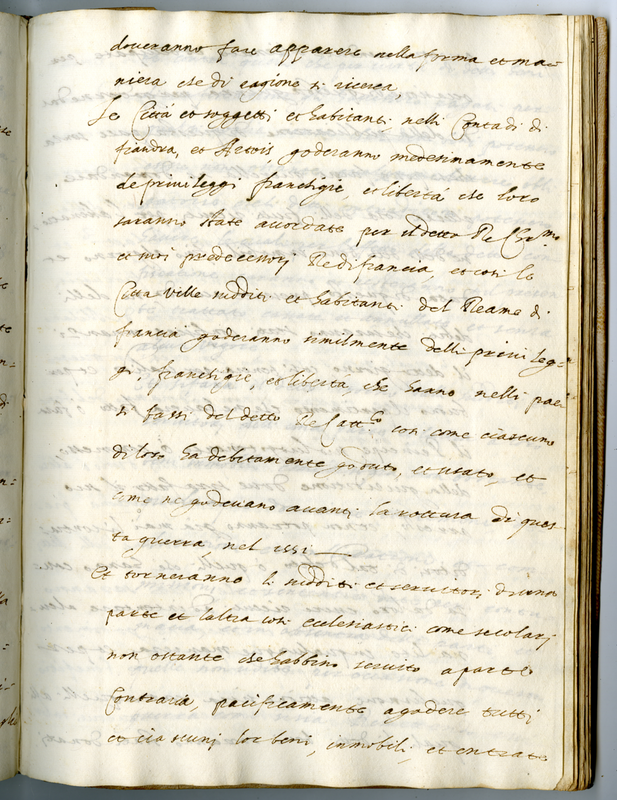 doveranno fare apparere nella forma et ma=
niera che di ragione si ricerca,
Le Città et soggetti et habitanti nelli Contadi di
fiandra, et Artois, goderanno medesimamente
de privileggi franchigie, et libertà che loro
saranno state accordate per il detto Re Chr.mo
et suoi predecessori Re di francia, et così le
Città ville sudditi et habitanti del Reame di
francia goderanno similmente delli privileg=
gi, franchigie, et libertà, che hanno nelli paesi
bassi del detto Re Catt.co così come ciascuno
di loro ha debitamente goduto, et usato, et
come ne godevano avanti la rottura di ques
ta guerra nel 1551 —
Et torneranno li sudditi et servitori d'una
parte et l'altra così ecclesiastici come secolari
non ostante che habbino servito a parte
Contraria, pacificamente a godere tutti
et ciascuni lor beni, immobili, et entrate